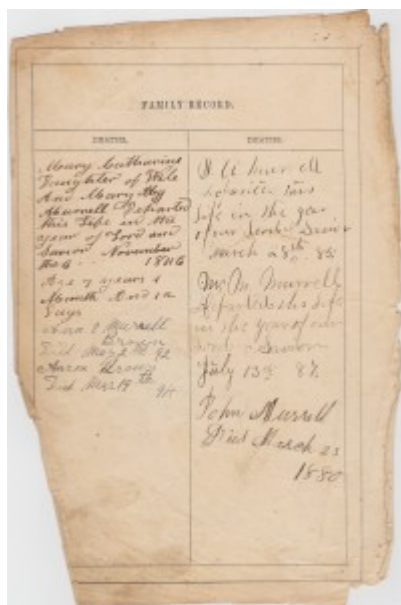 FAMILY RECORD.
DEATHS.
Mary Catharine
Daughter of
And Mary
Murrell Departed
this Life in the
year of Lord and
Savior November
the 6 1846
Age 7 years 1
Month And 12
Days
Anna E Murrell
Brown
Died May 2nd 92
Aaron Brown
Died Mar 19th
94
DEATHS.
Murrell
this
life in the year
of our Lord & Savior
March 28th 85
Mr. M. Murrell
departed this life
in the year of our
Lord & Savior
July 13th 87.
John Murrell
Died March 23
1880